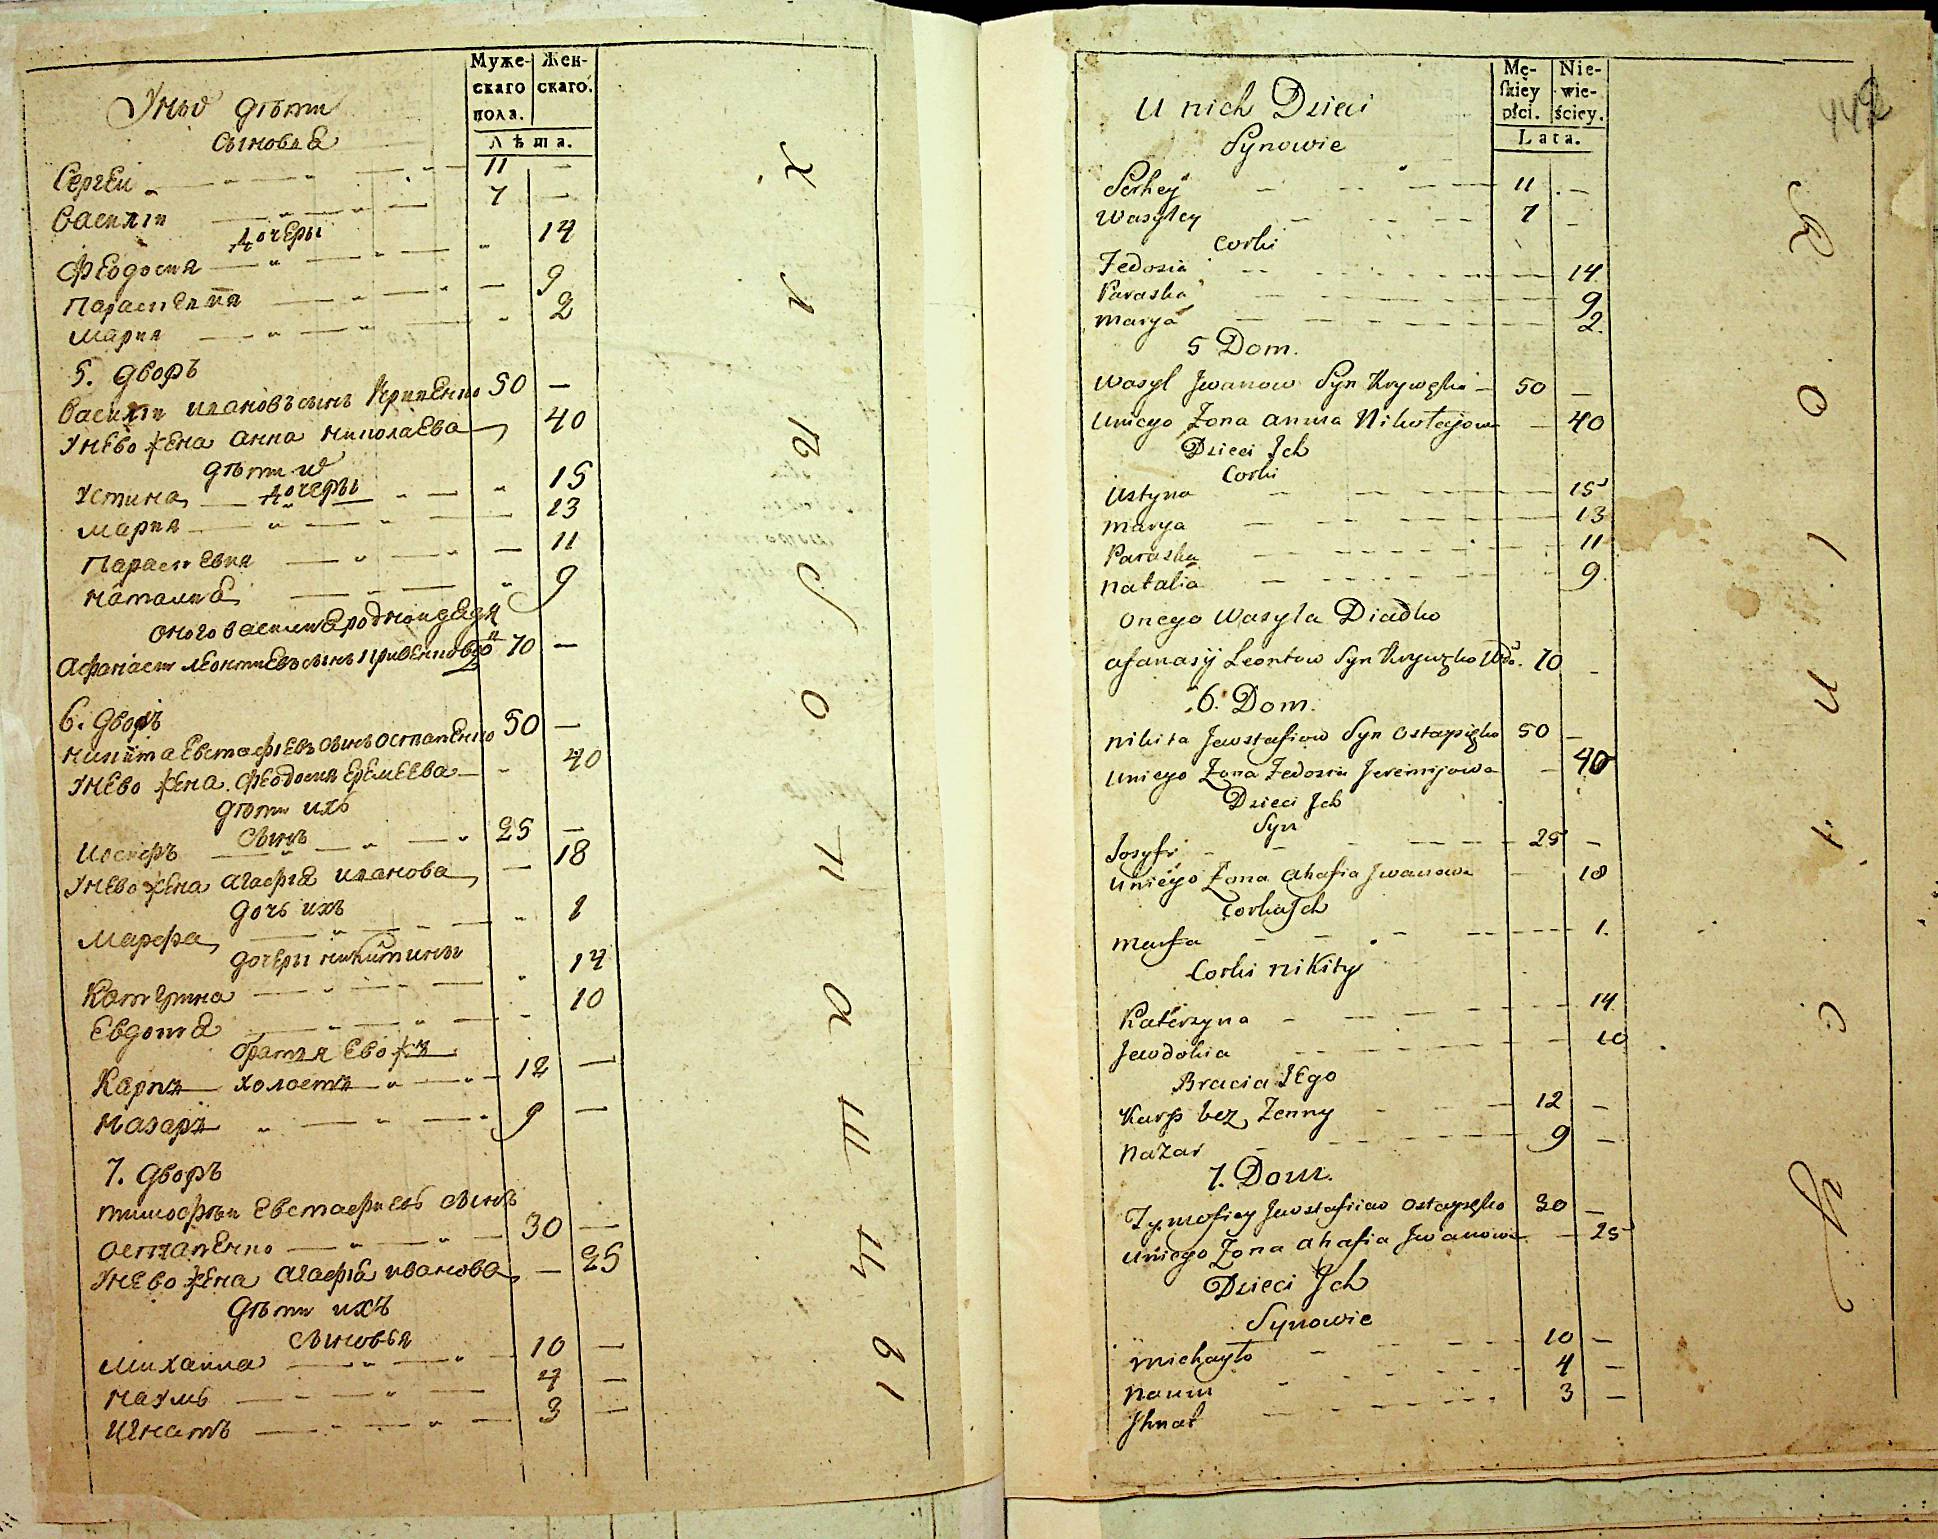 Муже-
скаго
пола.
Жен-
скаго.
Лѣта.
У нихъ дѣти
Сыновья
Сергей 11 —
Василiй 7 —
дочеры
Феодосия 14
Параскевия — 9
Мария 2
5. дворъ
Василiй ивановъ сынъ Кривенко 50 —
У нево жена анна николаева 40
дѣти их
дочеры
Устина 15
Мария 13
Параскевия — 11
Наталиа 9
оного василия родной дядя
Афанасiй леонтиевъ сынъ Кривенко вдо 70 —
6. дворъ
Никита Евстафиевъ сынъ остапенко 50 —
У нево жена феодосия Еремеева 40
дѣти ихъ
сынъ
Иосифъ 25 —
У нево жена агафiа иванова — 18
дочь ихъ
Марфа 1
дочеры никитины
Катерина 14
Евдотiа 10
братья Ево же
Карпъ холостъ 12 —
Назаръ 9 —
7. дворъ
тимофѣй Евстафиевъ сынъ
остапенко 30 —
У нево жена агафiа иванова — 25
дѣти ихъ
сыновья
Михаила 10 —
Наумъ 4 —
Игнатъ 3 —
Х
л
в
о
П
а
Ш
Ч
в
1
Mę-
skiey
płci.
Nie-
wie-
ściey.
Lata.
442
U nich Dzieci
Synowie
Serhey 11 —
Wasyley 7 —
Corki
Fedosia 14
Paraska 9
Marya 2.
5 Dom.
Wasyl Jwanow Syn Krywęko 50 —
U niego Żona Anna Nikołajowa — 40
Dzieci Jch
Corki
Ustyna 15
Marya 13
Paraska 11
Natalia 9.
onego Wasyla Diadko
Afanasij Leontow Syn Krywęko Wdo. 70 —
6. Dom.
Nikita Jewstafiow Syn Ostapęko 50 —
U niego Żona Fedosia Jeremijowa — 40
Dzieci Jch
Syn
Josyf 25 —
U niego Żona Ahafia Jwanowa — 18
Corka Jch
Marfa 1.
Corki Nikity
Katerzyna 14
Jewdokia 10
Bracia JEgo
Karp bez Żenny 12 —
Nazar 9 —
7. Dom.
Tymofiey Jewstafiiow Ostapęko 30 —
U niego Żona Ahafia Jwanowa — 25
Dzieci Jch
Synowie
Michayło 10 —
Naum 4 —
Jhnat 3 —